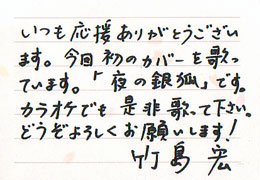 いつも応援ありがとうござい
ます。今回初のカバーを歌っ
ています。「夜の銀狐」です。
カラオケでも是非歌って下さい。
どうぞよろしくお願いします!
竹島宏